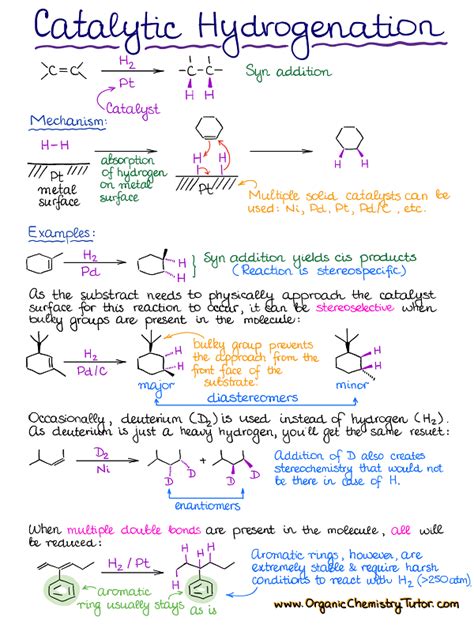 Catalytic Hydrogenation
C=C H₂ Pt -C-C- H H Syn addition
Catalyst
Mechanism:
H-H
absorption of hydrogen on metal surface
Pt
metal surface
H H
Pt
H H
Multiple solid catalysts can be
used: Ni, Pd, Pt, Pd/C, etc.
Examples:
H₂ Pd H H
Syn addition yields cis products
(Reaction is stereospecific)
As the substract needs to physically approach the catalyst
surface for this reaction to occur, it can be stereoselective when
bulky groups are present in the molecule:
H₂ Pd/C H H
bulky group prevents
the approach from the
front face of the
substrate.
H H
major
minor
diastereomers
Occasionally, deuterium (D₂) is used instead of hydrogen (H₂).
As deuterium is just a heavy hydrogen, you'll get the same result:
D₂ Ni D D + D D
Addition of D also creates
stereochemistry that would not
be there in case of H.
enantiomers
When multiple double bonds are present in the molecule, all will
be reduced:
H₂/Pt
Aromatic rings, however, are
extremely stable & require harsh
conditions to react with H₂ (>250atm)
aromatic
ring usually stays as is
www.OrganicChemistryTutor.com